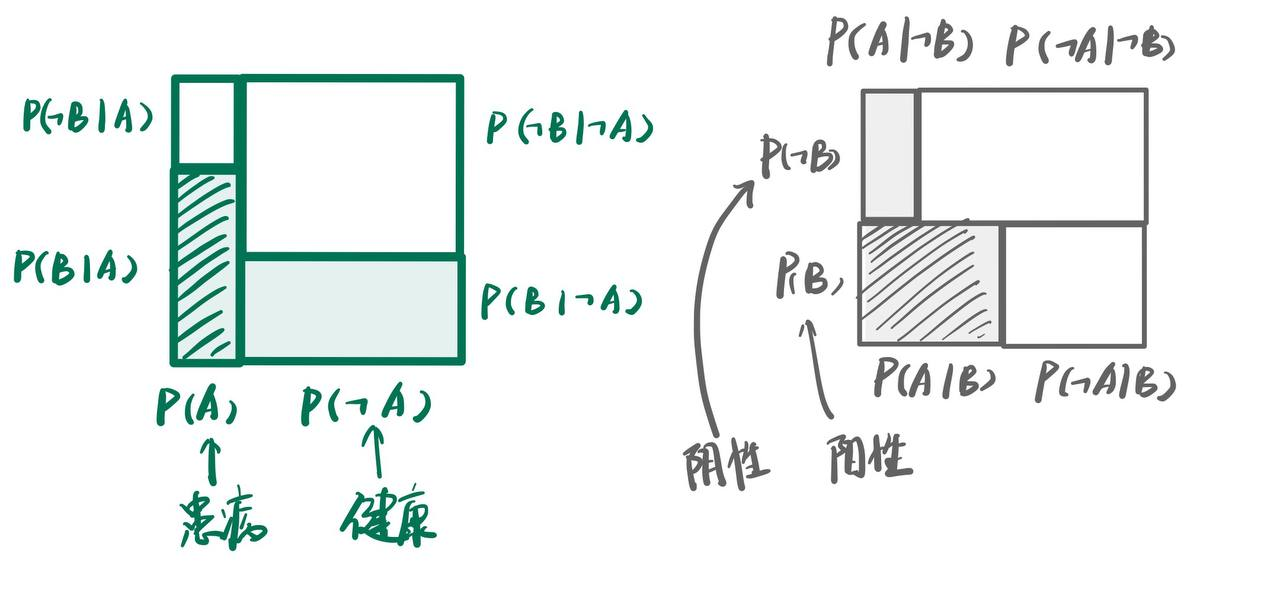 P(¬B|A)
P(¬B|¬A)
P(B|A)
P(B|¬A)
P(A)
P(¬A)
患病
健康
P(A|¬B) P(¬A|¬B)
P(¬B)
P(B)
P(A|B) P(¬A|B)
阴性
阳性